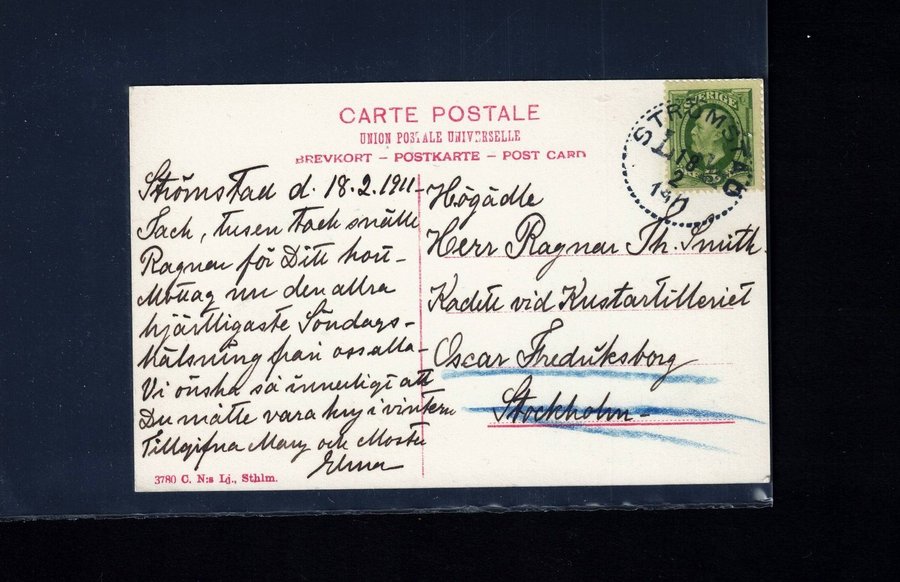 CARTE POSTALE
UNION POSTALE UNIVERSELLE
BREVKORT – POSTKARTE – POST CARD
SVERIGE
STRÖMSTAD
18 2
1911
Strömstad d. 18.2.1911-
Tack, tusen tack snälle
Ragnar för Ditt kort-
Mottag nu den allra
hjärtligaste Söndags-
hälsning från oss alla-
Vi önska så innerligt att
Du måtte vara kry i vintern
Tillgifna Mary och Moster
Elma
3780 C. N:s Lj., Sthlm.
Högädle
Herr Ragnar Th. Smith.
Kadett vid Kustartilleriet
Oscar Fredriksborg
Stockholm-